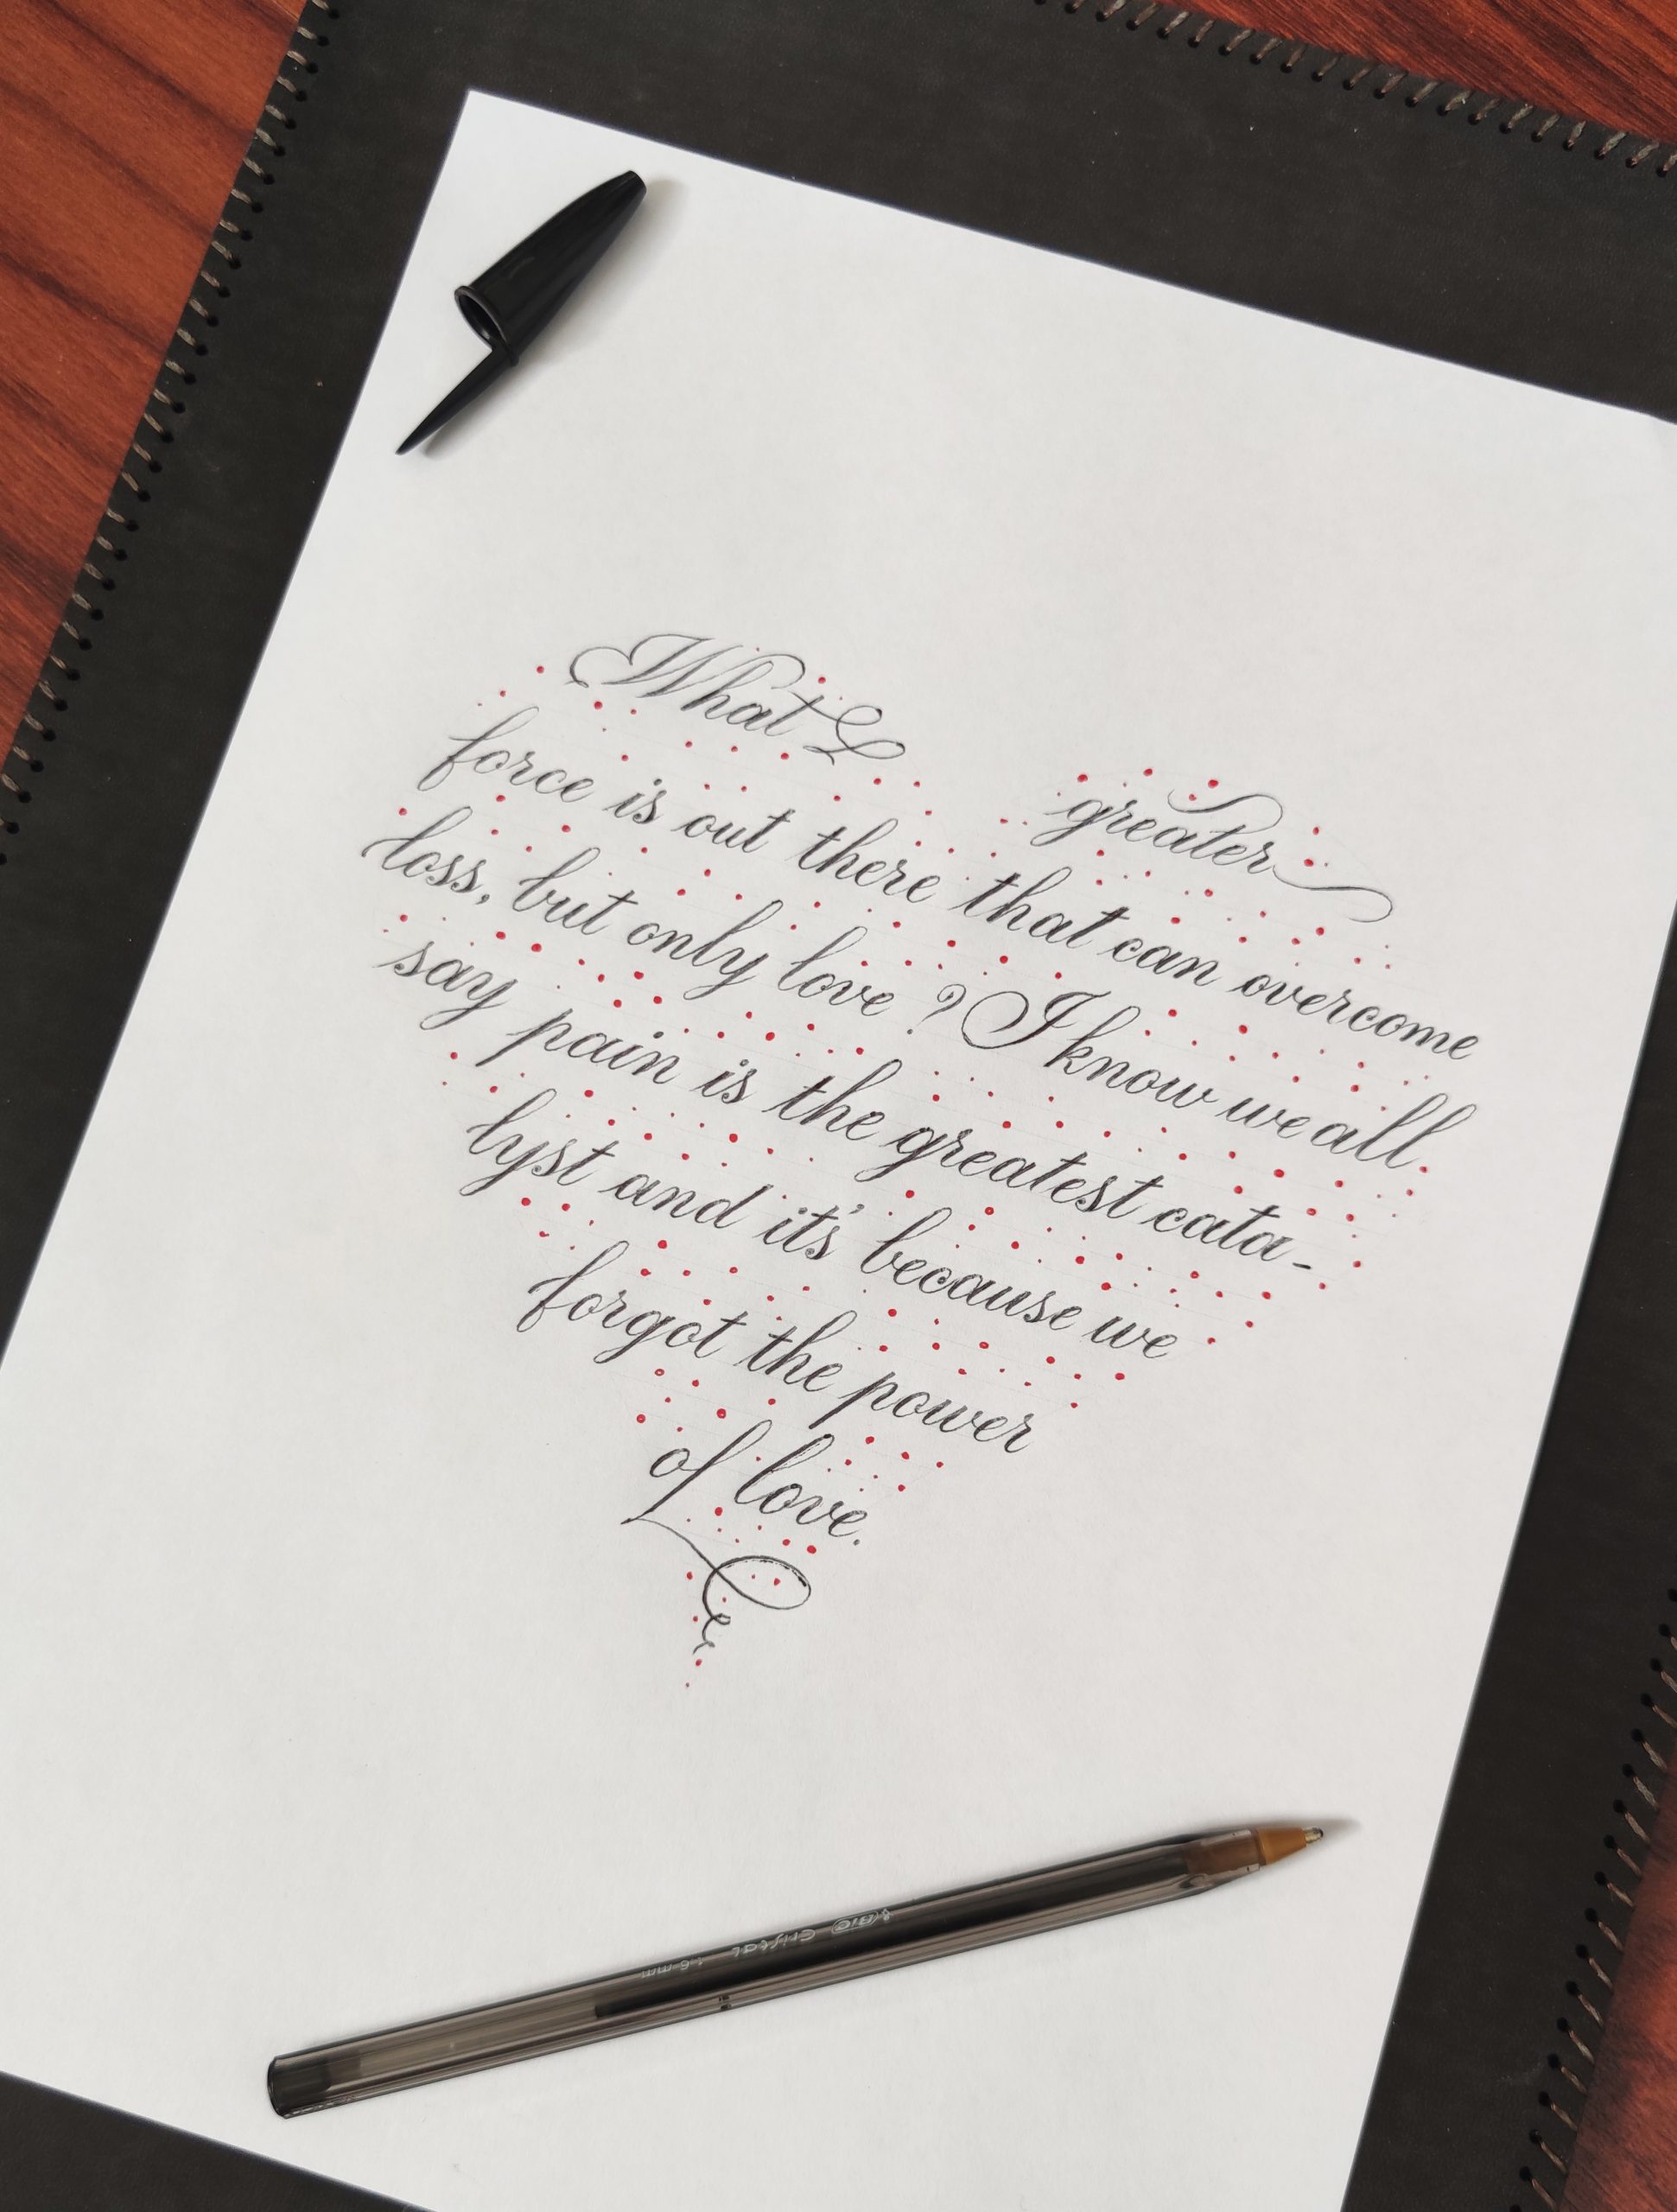 What greater
force is out there that can overcome
loss, but only love? I know we all
say pain is the greatest cata-
lyst and it's because we
forgot the power
of love.
BIC Cristal 1.6 mm